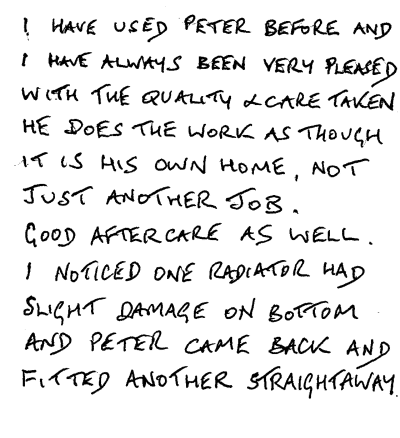 I HAVE USED PETER BEFORE AND
I HAVE ALWAYS BEEN VERY PLEASED
WITH THE QUALITY & CARE TAKEN
HE DOES THE WORK AS THOUGH
IT IS HIS OWN HOME, NOT
JUST ANOTHER JOB.
GOOD AFTERCARE AS WELL.
I NOTICED ONE RADIATOR HAD
SLIGHT DAMAGE ON BOTTOM
AND PETER CAME BACK AND
FITTED ANOTHER STRAIGHTAWAY.